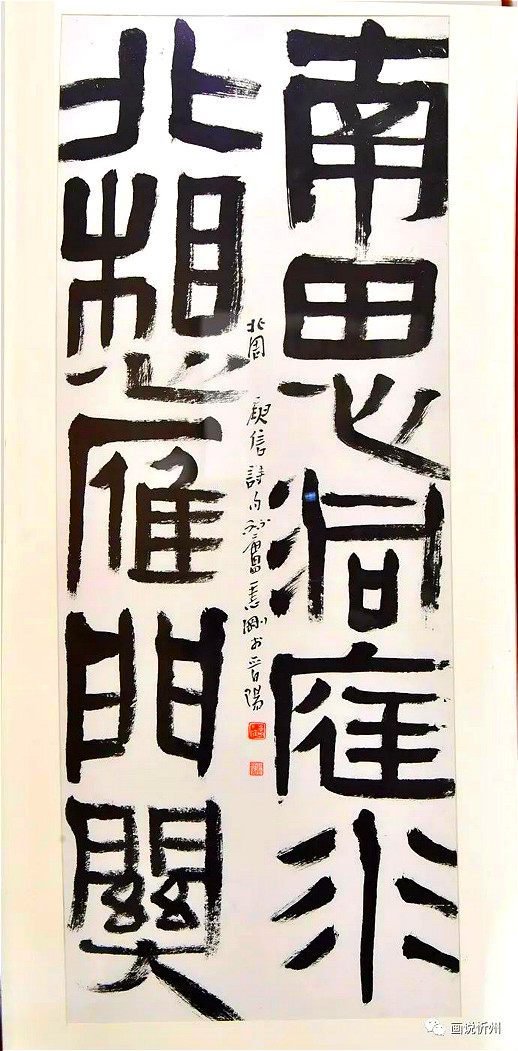 南思洞庭水
北想雁門關
北周 庾信詩句 晋陽
画说忻州